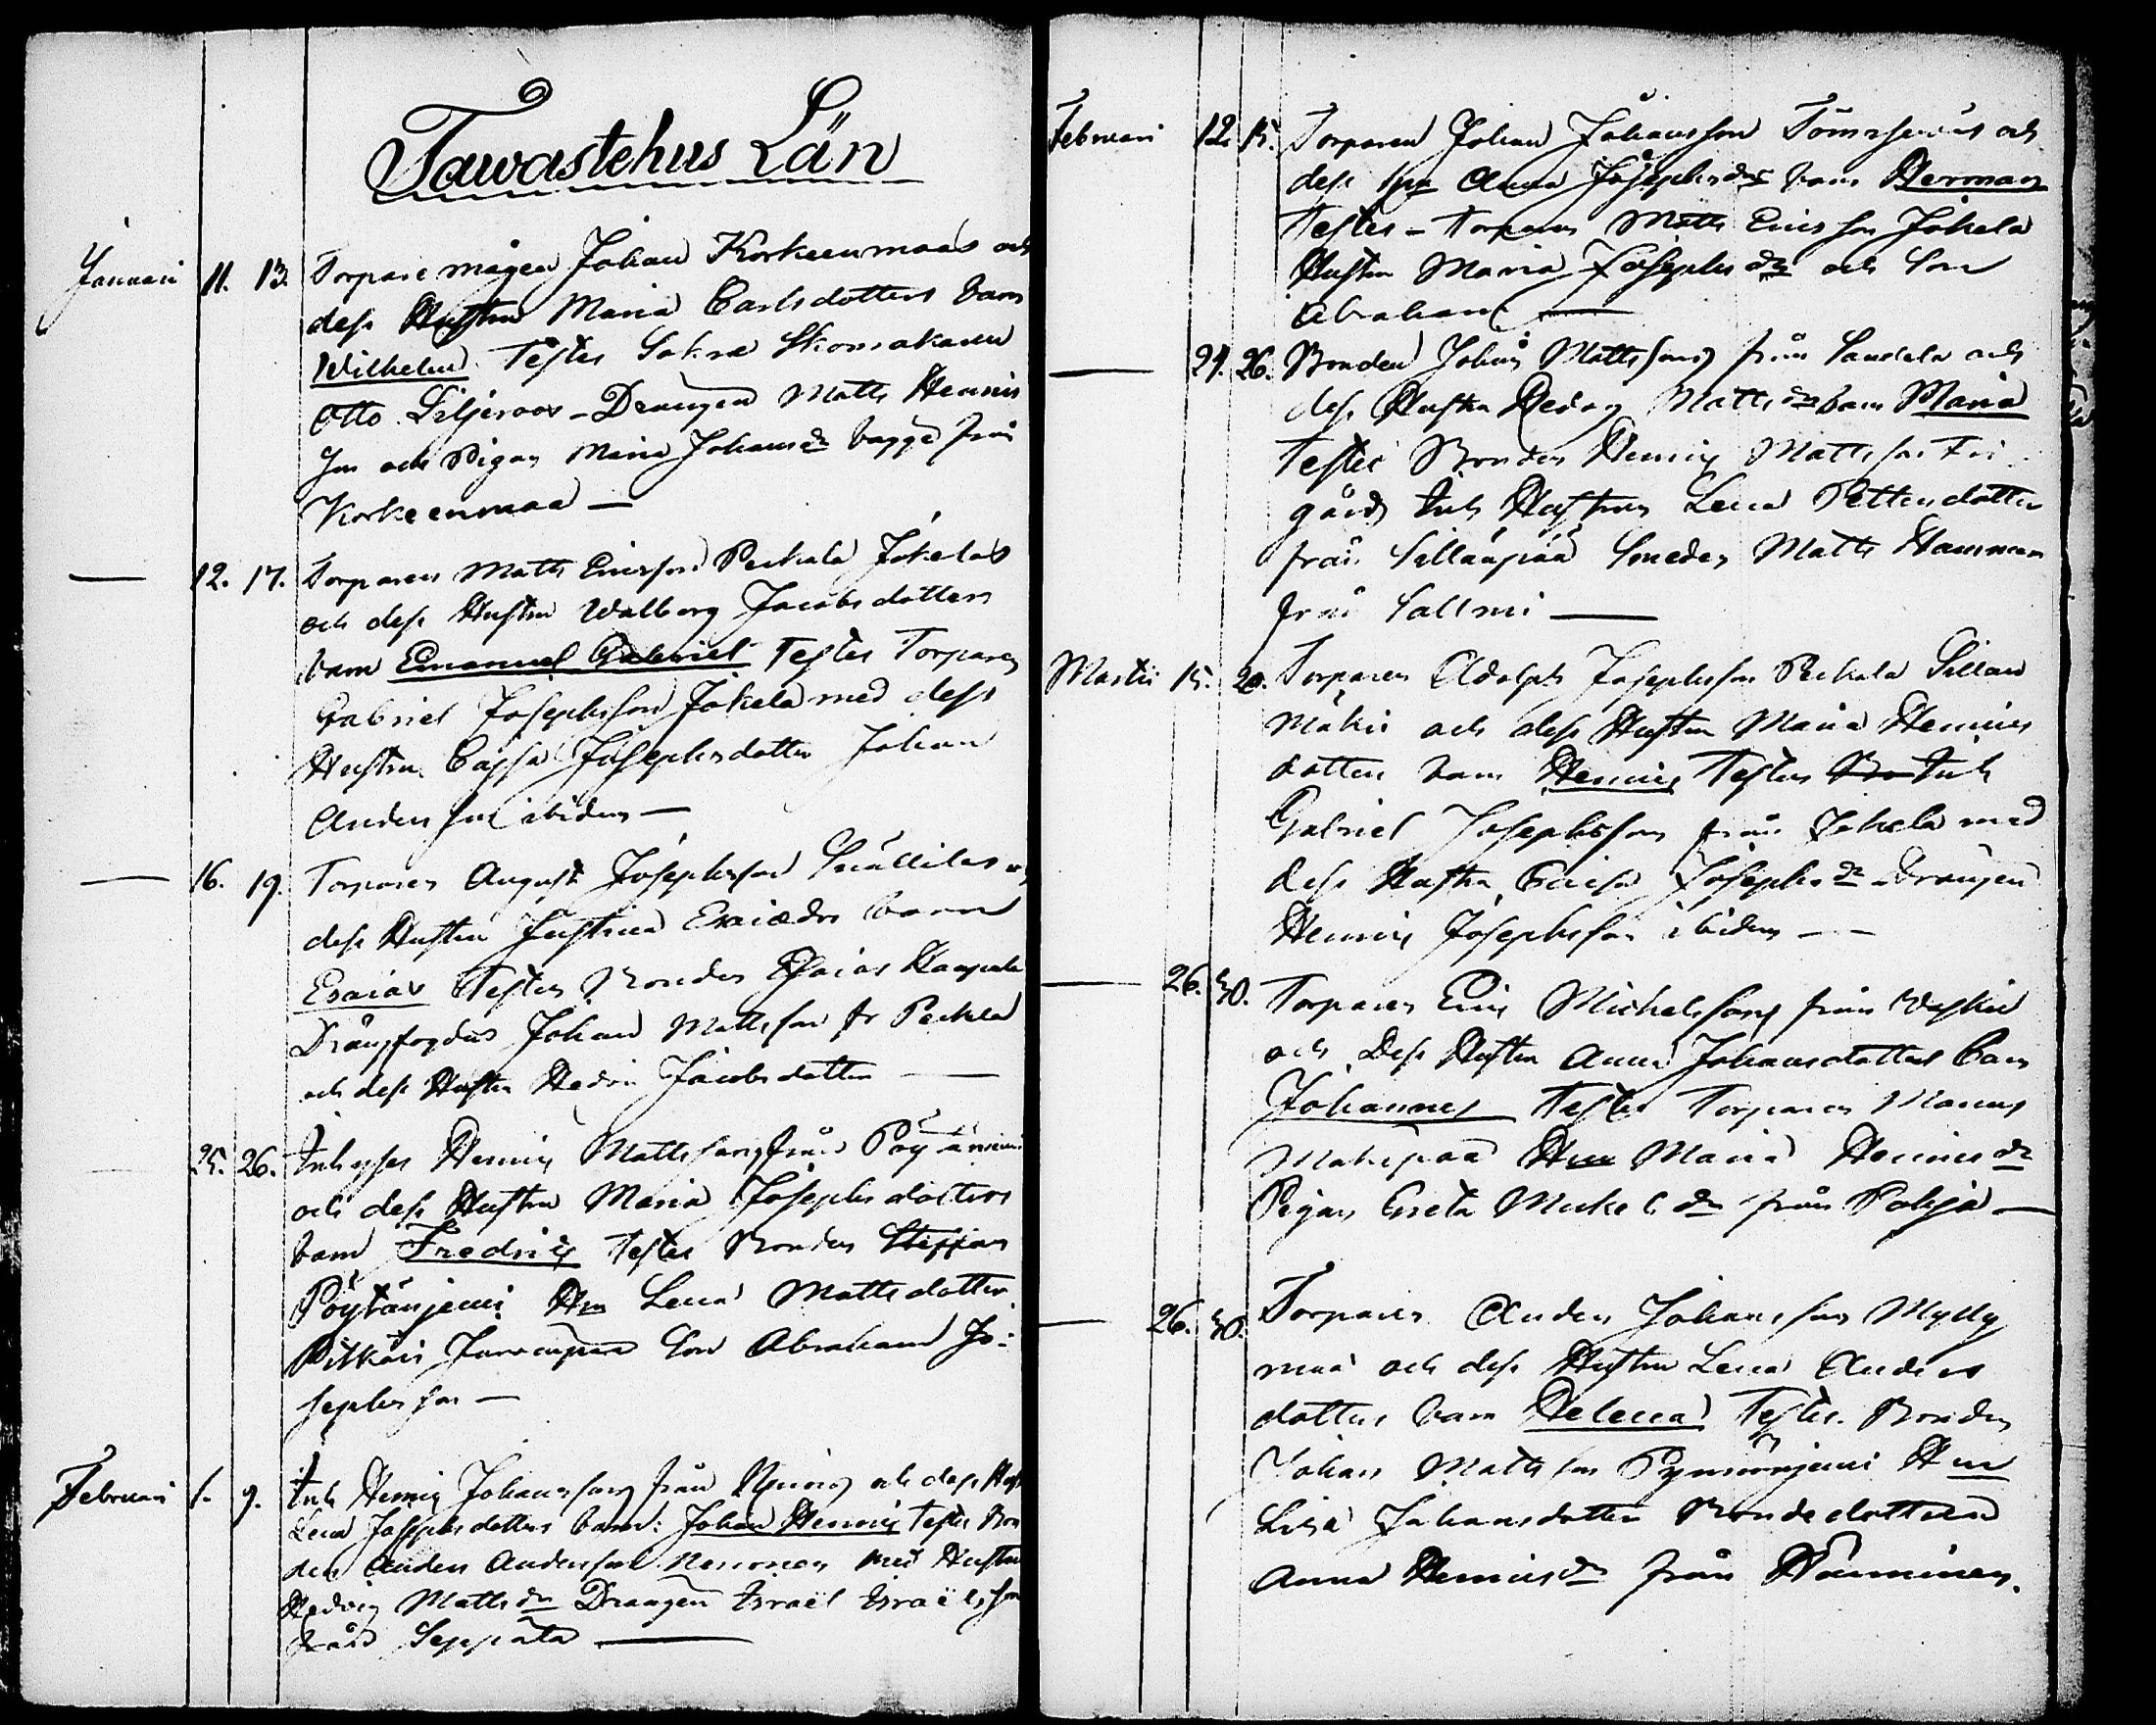 Tawastehus Län
Januari 11. 13. Torpare mågen Johan Korkeenmaas och
dess Hustru Maria Carlsdotters barn
Wilhelm Testes Sokne Skomakaren
Otto Liljeroos - Drängen Matts Henrics
son och Pigan Maria Johansdr bägge från
Korkeenmaa —
— 12. 17. Torparen Matts Ericsson Peckala Jokelas
och dess Hustru Walborg Jacobsdotters
barn Emanuel Gabriel Testes Torparen
Gabriel Josephsson Jokela med dess
Hustru Cajsa Josephsdotter Johan
Andersson ibidem —
— 16. 19. Torparen August Josephsson
dess Hustru Justina Esaiædrs barn
Esaias Testes Bonden Esaias
Drängfogden Johan Mattsson fr Peckla
och dess Hustru Hedvi Jacobsdotter —
25. 26. Inhyses Henric Mattsson från
och dess Hustru Maria Josephsdotters
barn Fredric Testes Bonden Steffan
Pöytäniemi Hu Lena Mattsdotter
Son Abraham Jo-
sephsson —
Februari 1. 9. Inh Henric Johansson från och dess Hust
Lena Josephsdotters barn: Johan Henric Testes Bon
den Anders Andersson med Hustru
Hedvig Mattsdr Drängen Israël Israëlsson
från Seppälä —
Februari 12. 15. Torparen Johan Johansson och
dess Anna Josephsdrs barn Herman
Testes - Torparen Matts Ericsson Jokela
Hustru Maria Josephsdr och Son
Abraham —
— 24. 26. Bonden Johan Mattsson från och
dess Hustru Hedvig Mattsdrs barn Maria
Testes Bonden Henric Mattsson
gård Inh Hustrun Lena Pettersdotter
från Sillanpää Smeden Matts
från Sallmi —
Martii 15. 20. Torparen Adolph Josephsson Peckala Sillan
mäkis och dess Hustru Maria Henrics
dotters barn Henric Testes Inh
Gabriel Josephsson från Jokela med
dess Hustru Josephsdr Drängen
Henric Josephsson ibidem —
— 26. 30. Torparen Eric Michelsson från
och Dess Hustru Anna Johansdotters barn
Johannes Testes Torparen
Mäkipää Hu Maria Henricsdr
Pigan Greta Mickelsdr från Pohja —
— 26. 30. Torparen Anders Johansson Mylly
maa och dess Hustru Lena Anders
dotters barn Helena Testes Bonden
Johan Mattsson Hu
Lisa Johansdotter Bondedottern
Anna Henricsdr från